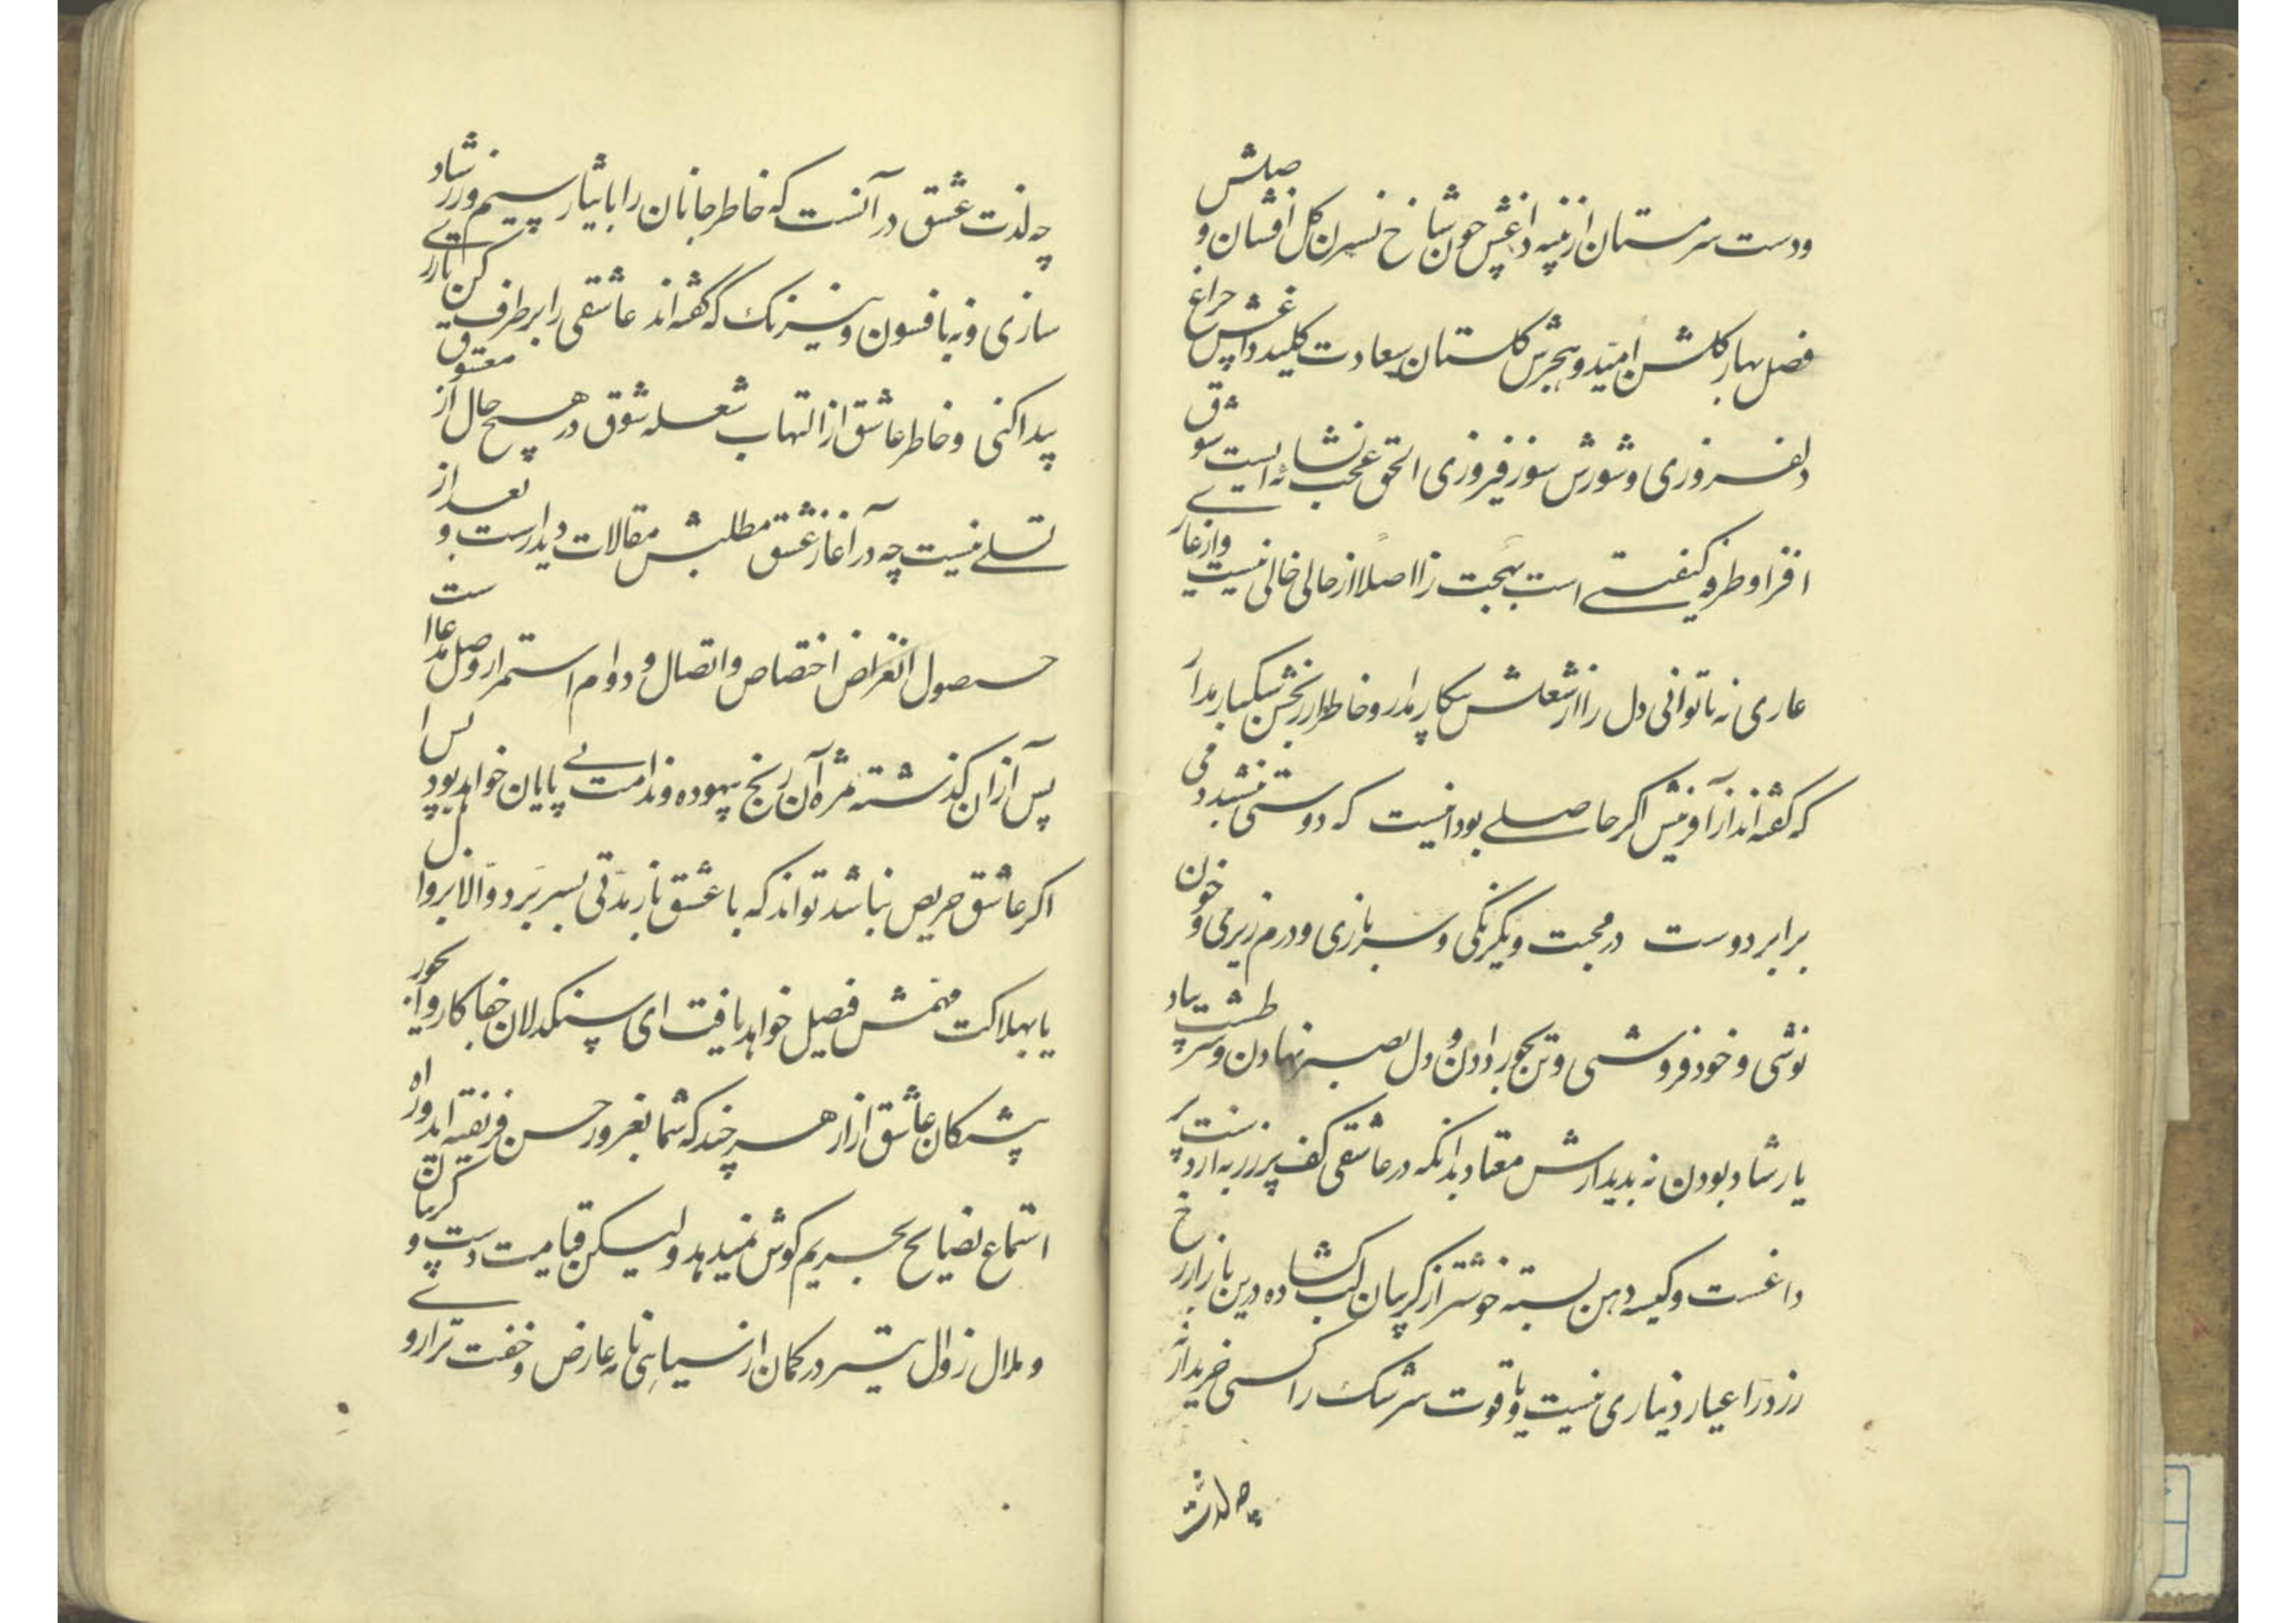 ودست سرمستان از پنبه داغش چون شاخ نسرین گل افشان و صلش
فصل بهار گلشن امید و هجرش گلستان سعادت کلید داغش چراغ
دلفروزی و شورش سوز فیروزی الحق عجب نشاءه ایست شوق
افزا و طرفه کیفیتی است بهجت زا اصلا از حالی خالی نیست و از عار
عاری نه تا توانی دل را از شغلش بیکار مدار و خاطر از رنجش سبکبار مدار
که گفته اند از آفرینش اگر حاصلی بود اینست که دوستی بنشیند دمی
برابر دوست در محبت و یکرنگی و سربازی و درم ریزی و خون
نوشی و خودفروشی و تن بجور دادن و دل بصبر نهادن و سر پیاد
یار شاد بودن نه بدیدارش معتاد بدانکه در عاشقی کف پر زر به از دست پر
داغست و کیسه دهن بسته خوشتر از گریبان لب گشاده درین بازار رخ
زرد را عیار دیناری نیست و یاقوت سرشک را کسی خریدار نه
چه لذت
چه لذت عشق در آنست که خاطر جانان را بایثار سیم و زر شاد
سازی و نه بافسون و نیرنگ که گفته اند عاشقی را برطرف کن تا زری
پیدا کنی و خاطر عاشق از التهاب شعله شوق در هیچ حال از معشوق
تسلی نیست چه در آغاز عشق مطلبش مقالات دیدارست و بعد از
حصول انقراض اختصاص و اتصال و دوام استمرار وصل مدعاست
پس از آن گذشته مژه آن رنج بیهوده و ندامت بی پایان خواهد بود پس
اگر عاشق حریص نباشد تواند که با عشق باز مدتی بسر برد و الا بزوال
یا بهلاکت مهمش فیصل خواهد یافت ای سنگدلان جفا کار و ای بجور
پیشکان عاشق ازار هر چند که شما بغرور حسن فریفته اید و راه
استماع نصایح بحریم گوش نمیدهد ولیکن قیامت دست و گریبان
و ملال زوال بتیر در کمان از سیاهی نامه عارض و خفت ترازوی